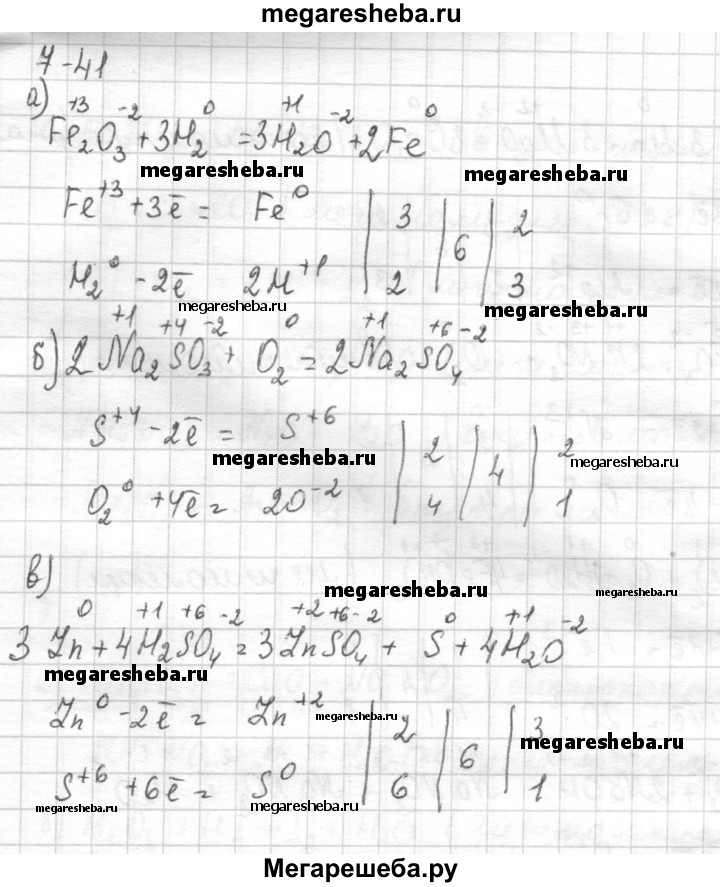 megaresheba.ru
7-41
а) Fe₂⁺³O₃⁻² + 3H₂⁰ = 3H₂⁺¹O⁻² + 2Fe⁰
megaresheba.ru megaresheba.ru
Fe⁺³ + 3ē = Fe⁰ | 3 | 6 | 2
H₂⁰ - 2ē 2H⁺¹ | 2 | | 3
megaresheba.ru megaresheba.ru
б) 2Na₂⁺¹S⁺⁴O₃⁻² + O₂⁰ = 2Na₂⁺¹S⁺⁶O₄⁻²
S⁺⁴ - 2ē = S⁺⁶ | 2 | 4 | 2
megaresheba.ru megaresheba.ru
O₂⁰ + 4ē = 2O⁻² | 4 | | 1
в)
megaresheba.ru megaresheba.ru
3Zn⁰ + 4H₂⁺¹S⁺⁶O₄⁻² = 3Zn⁺²S⁺⁶O₄⁻² + S⁰ + 4H₂⁺¹O⁻²
megaresheba.ru megaresheba.ru
Zn⁰ - 2ē = Zn⁺² | 2 | 6 | 3
megaresheba.ru megaresheba.ru
S⁺⁶ + 6ē = S⁰ | 6 | | 1
megaresheba.ru megaresheba.ru
Мегарешеба.ру